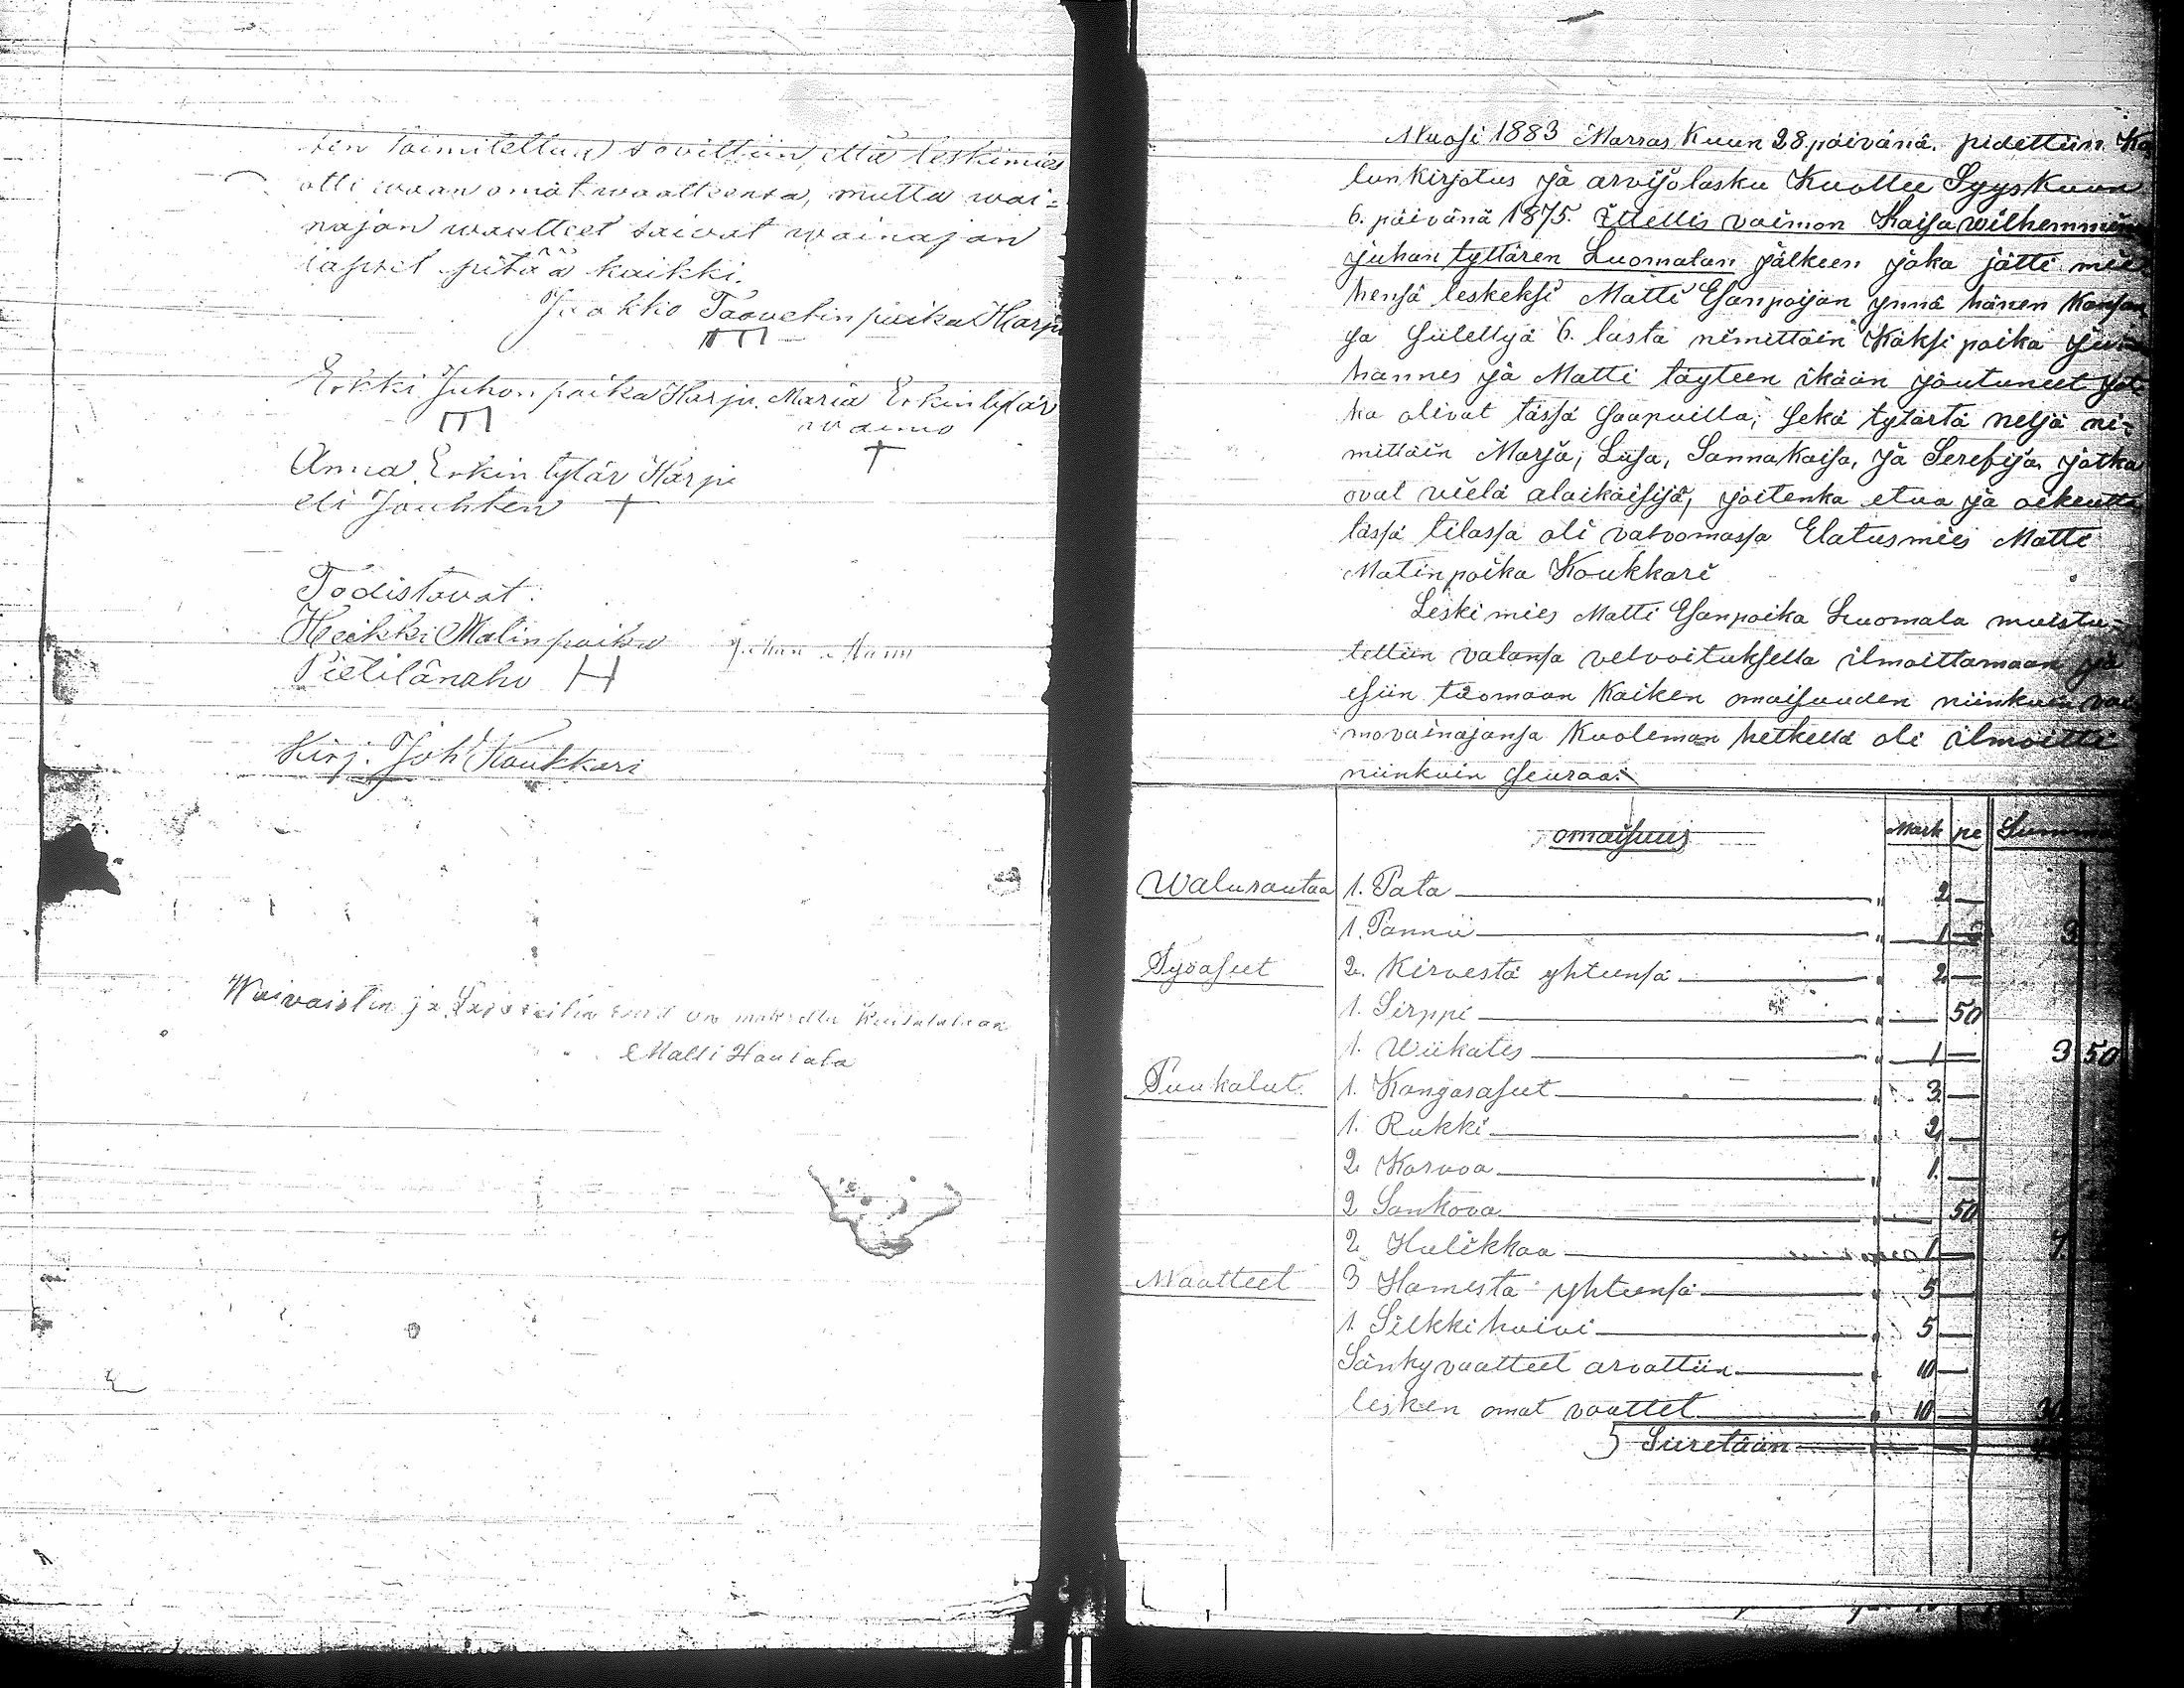 sen toimitettua sovittiin, että leskimies
otti waan omat waatteensa, mutta wai=
najan waatteet saivat wainajan
lapset pitää kaikki.
Jaakko Taavetin poika Harju
Erkki Juhon poika Harju. Maria Erkin tytär
waimo
Anna Erkin tytär Harju
eli Jouhten
Todistavat.
Heikki Matinpoika
Pietilänaho H
Kirj. Joh Koukkari
Waivaistin ja on maksettu
Matti Hautala
Wuosi 1883 Marras Kuun 28 päivänä. pidettiin Ka
lunkirjotus ja arvijolasku Kuollee Syyskuun
6. päivänä 1875. Itellis vaimon Kaisa wilhemmiina
juhan tyttären Luomalan jälkeen joka jätti mie
hensä leskeksi Matti Esanpoijan ynnä hänen Kansan
sa siitettyä 6. lasta nimittäin Kaksi poika
hannes ja Matti täyteen ikään joutuneet jot
ka olivat tässä saapuilla, sekä tytärtä neljä ni=
mittäin Marja, Liisa, Sanna Kaisa, ja Serefija jotka
ovat vielä alaikäisijä, joitenka etua ja oikeutta
tässä tilassa oli valvomassa Elatusmies Matti
Matinpoika Koukkari
Leski mies Matti Esanpoika Luomala muistu=
tettiin valansa velvoituksella ilmoittamaan ja
esiin tuomaan Kaiken omaisuuden niinkuin vai
movainajansa Kuoleman hetkellä oli ilmoitti
niinkuin seuraa:
omaisuus Mark pe Summa
Walurautaa 1. Pata " 2 —
1. Pannu " 1 — 3
Työaseet 2. Kirvestä yhteensä " 2 —
1. Sirppi " — 50
1. Wiikates " 1 — 3 50
Puukalut 1. Kangasaseet " 3 —
1. Rukki " 2 —
2 Korvoa " 1. —
2 Sankova " — 50
2 Hulikkaa 1 — 7.
Waatteet 3 Hamesta yhteensä " 5 —
1. Silkki huivi " 5 —
Sänkyvaatteet arvattiin " 10 —
lesken omat vaattet " 10 — 30
Siiretään